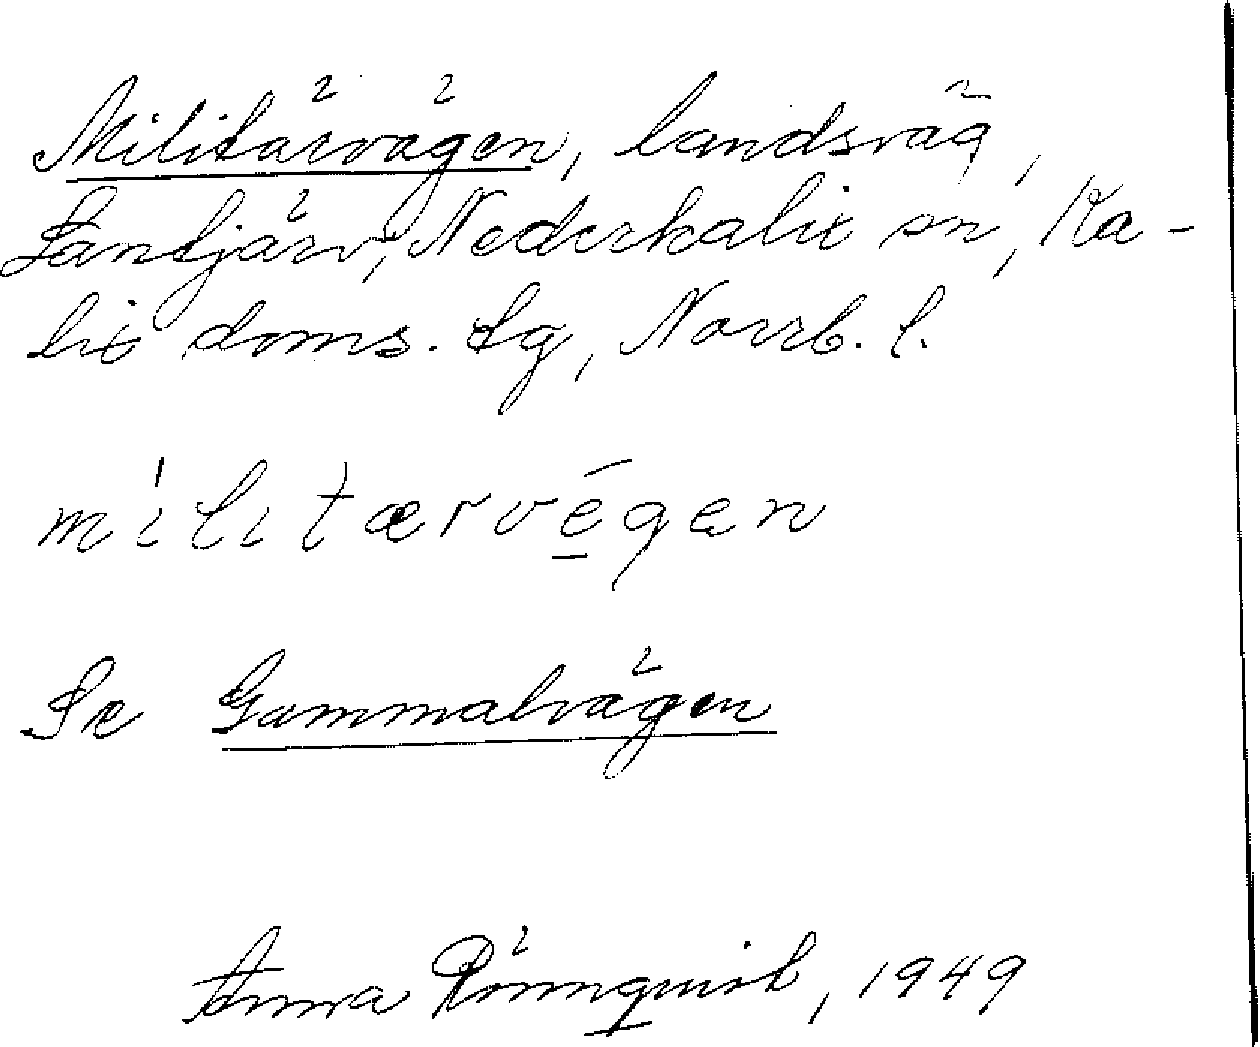 Militärvägen, landsväg,
Säntjärv, Nederkalix sn, Ka-
lix doms. tg, Norrb. l.
mi̍litærvēgen
Se Gammalvägen
Anna Rönnquist, 1949